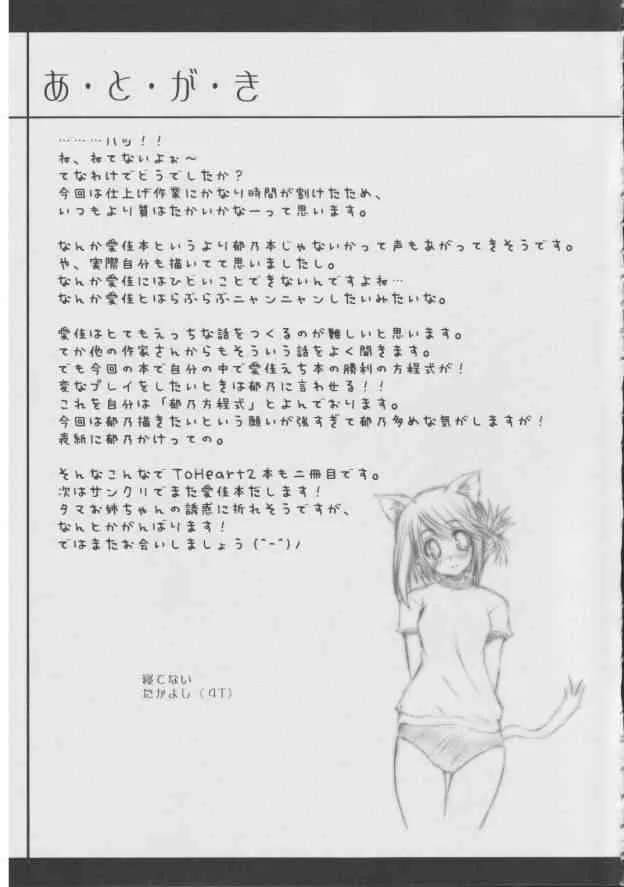 あ・と・が・き
………ハッ！！
ね、ねてないよぉ～
てなわけでどうでしたか？
今回は仕上げ作業にかなり時間が割けたため、
いつもより質はたかいかなーって思います。
なんか愛佳本というより郁乃本じゃないかって声もあがってきそうです。
や、実際自分も描いてて思いましたし。
なんか愛佳にはひどいことできないんですよね…
なんか愛佳とはらぶらぶニャンニャンしたいみたいな。
愛佳はとてもえっちな話をつくるのが難しいと思います。
てか他の作家さんからもそういう話をよく聞きます。
でも今回の本で自分の中で愛佳えち本の勝利の方程式が！
変なプレイをしたいときは郁乃に言わせる！！
これを自分は「郁乃方程式」とよんでおります。
今回は郁乃描きたいという願いが強すぎて郁乃多めな気がしますが！
表紙に郁乃かけっての。
そんなこんなでToHeart2本も二冊目です。
次はサンクリでまた愛佳本だします！
タマお姉ちゃんの誘惑に折れそうですが、
なんとかがんばります！
ではまたお会いしましょう(^-^)ﾉ
寝てない
たかよし（4T）